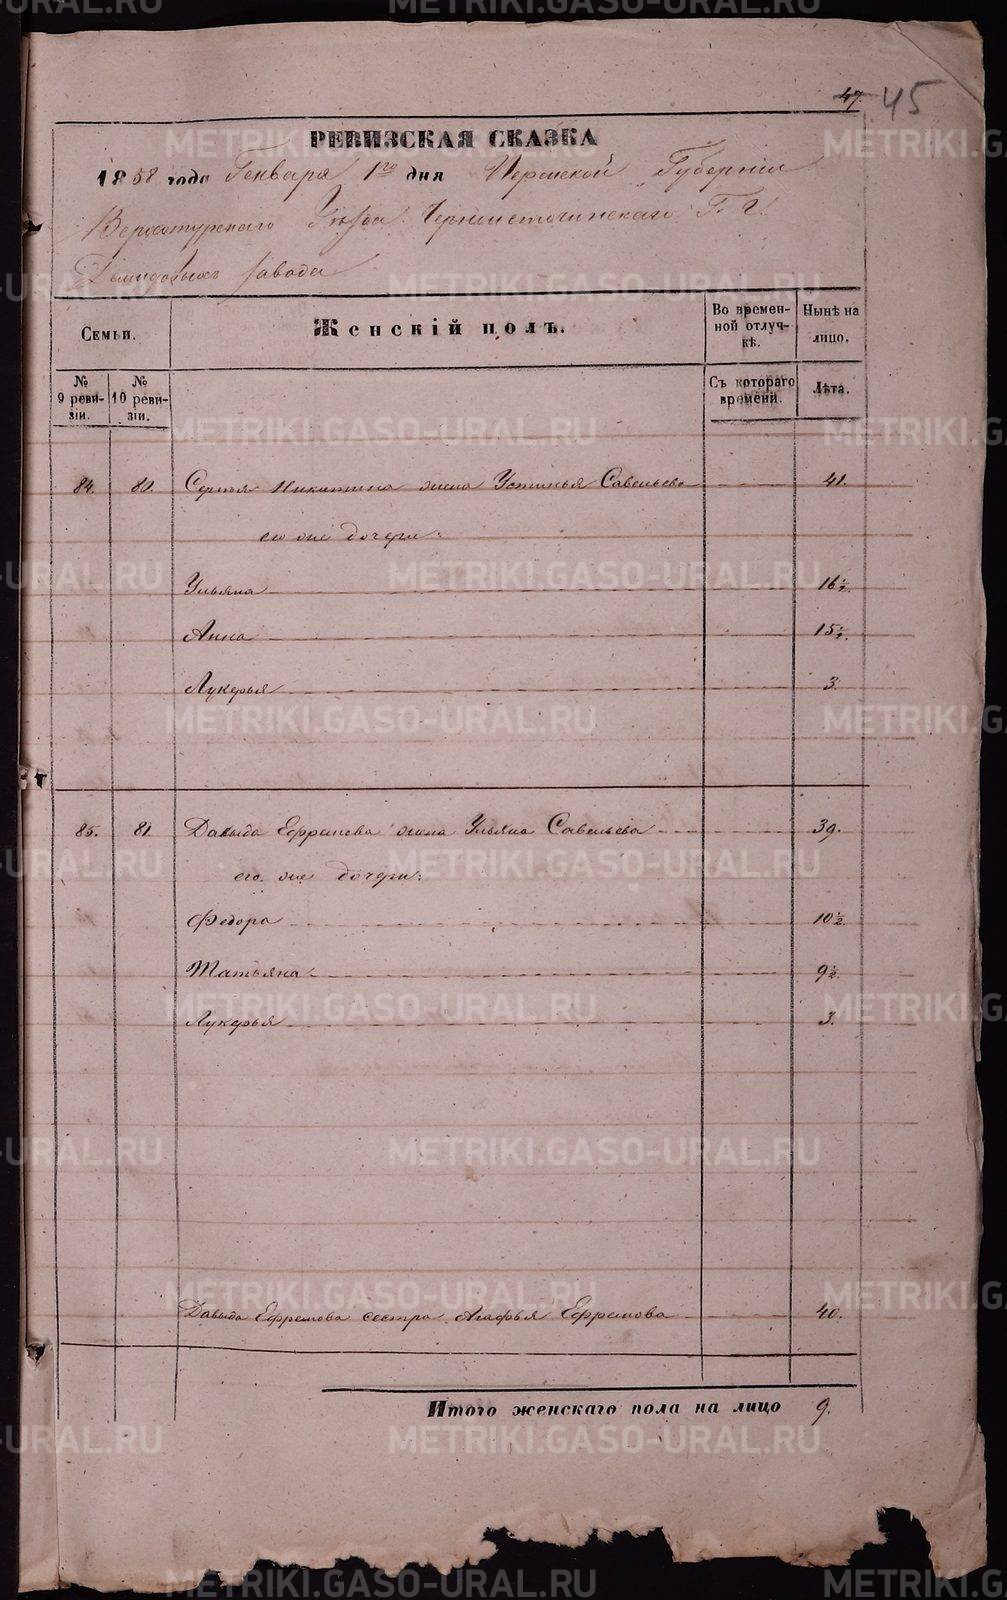 47. 45
РЕВИЗСКАЯ СКАЗКА
1858 года Генваря 1го дня Пермской Губернии
Верхотурскаго Уѣзда Черноисточинскаго Г. г.
Демидовыхъ завода
Семьи.
Женскій полъ.
Во времен-
ной отлуч-
кѣ.
Нынѣ на
лицо.
№
9 реви-
зіи.
№
10 реви-
зіи.
Съ котораго
времени.
Лѣта.
84. 80. Сергѣя Никитина жена Устинья Савельева 41.
его же дочери:
Ульяна 16½.
Анна 15½.
Лукерья 3.
85. 81. Давыда Ефремова жена Ульяна Савельева 39.
его же дочери:
Федора 10½
Татьяна 9½
Лукерья 3.
Давыда Ефремова сестра Агафья Ефремова 40.
Итого женскаго пола на лицо 9.
METRIKI.GASO-URAL.RU